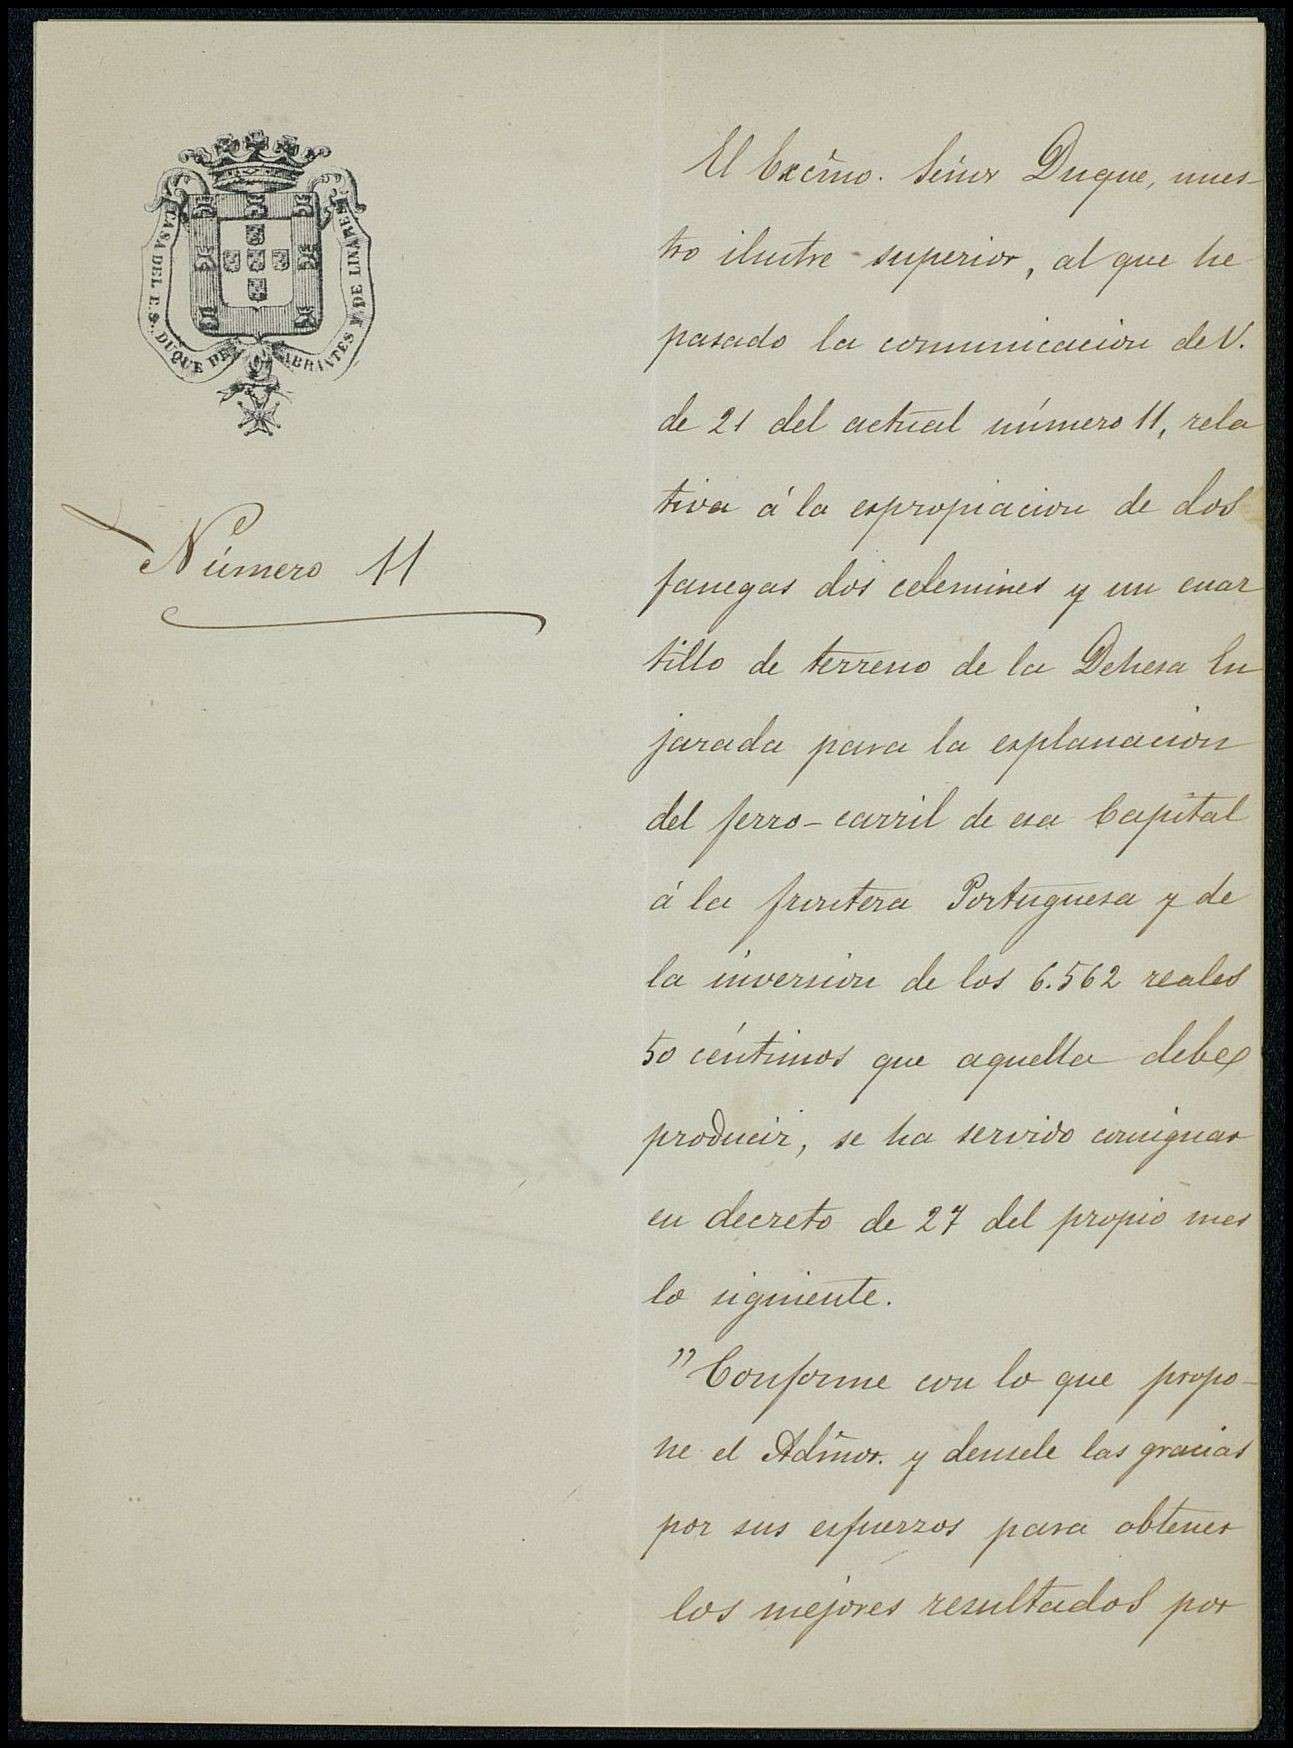 CASA DEL E. S. DUQUE DE ABRANTES Y DE LINARES
Número 11
El Excmo. Señor Duque, nues-
tro ilustre superior, al que he
pasado la comunicacion de V.
de 21 del actual número 11, rela
tiva á la espropiacion de dos
fanegas dos celemines y un cuar
tillo de terreno de la Dehesa En
jarada para la esplanacion
del ferro-carril de esa Capital
á la frontera Portuguesa y de
la inversion de los 6.562 reales
50 céntimos que aquella debe
producir, se ha servido consignar
en decreto de 27 del propio mes
lo siguiente.
"Conforme con lo que propo-
ne el Admor. y densele las gracias
por sus esfuerzos para obtener
los mejores resultados por